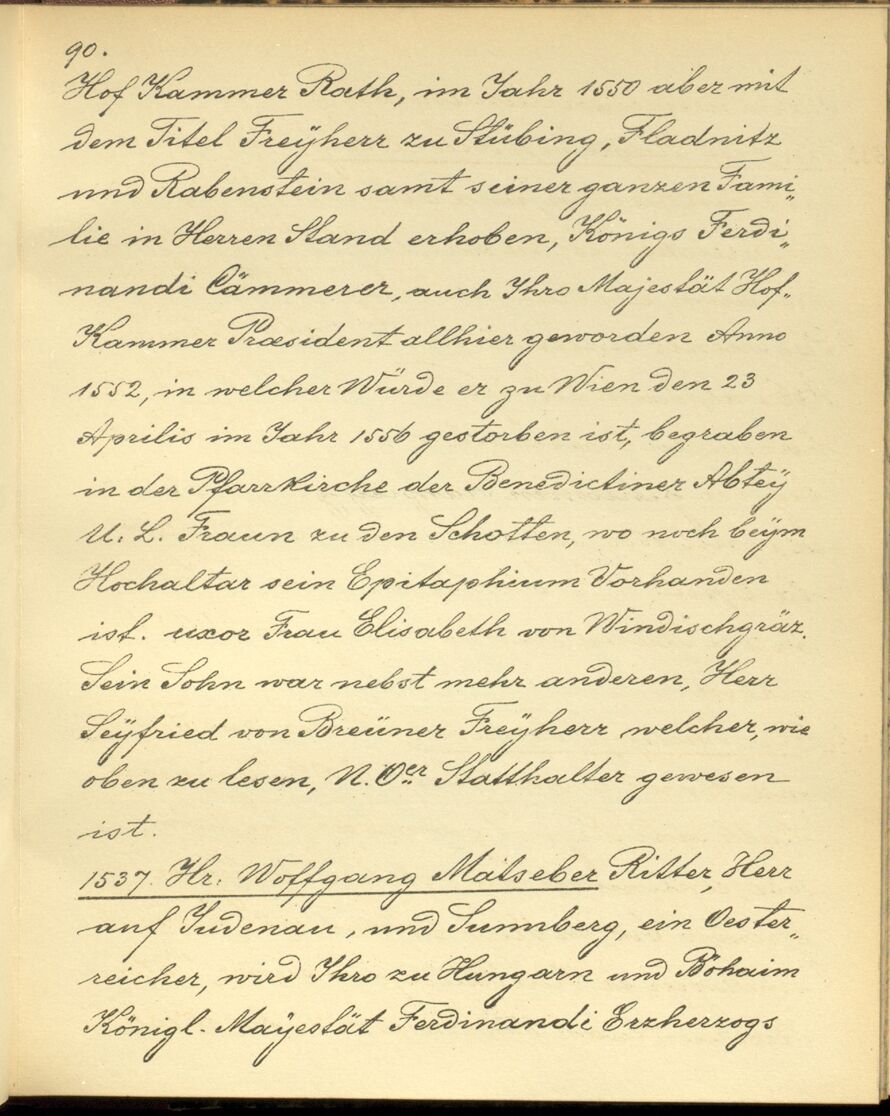 90.
Hof Kammer Rath, im Jahr 1550 aber mit
dem Titel Freÿherr zu Stübing, Fladnitz
und Rabenstein samt seiner ganzen Fami„
lie in Herren Stand erhoben, Königs Ferdi„
nandi Cämmerer, auch Ihro Majestät Hof„
Kammer Præsident allhier geworden Anno
1552, in welcher Würde er zu Wien den 23
Aprilis im Jahr 1556 gestorben ist, begraben
in der Pfarrkirche der Benedictiner Abteÿ
U. L. Fraun zu den Schotten, wo noch beÿm
Hochaltar sein Epitaphium Vorhanden
ist. uxor Frau Elisabeth von Windischgräz.
Sein Sohn war nebst mehr anderen, Herr
Seÿfried von Breüner Freÿherr welcher, wie
oben zu lesen, N. Oer Statthalter gewesen
ist.
1537. Hr: Woffgang Matseber Ritter, Herr
auf Judenau, und Sunnberg, ein Oester„
reicher, wird Ihro zu Hungarn und Böhaim
Königl. Maÿestät Ferdinandi Erzherzogs